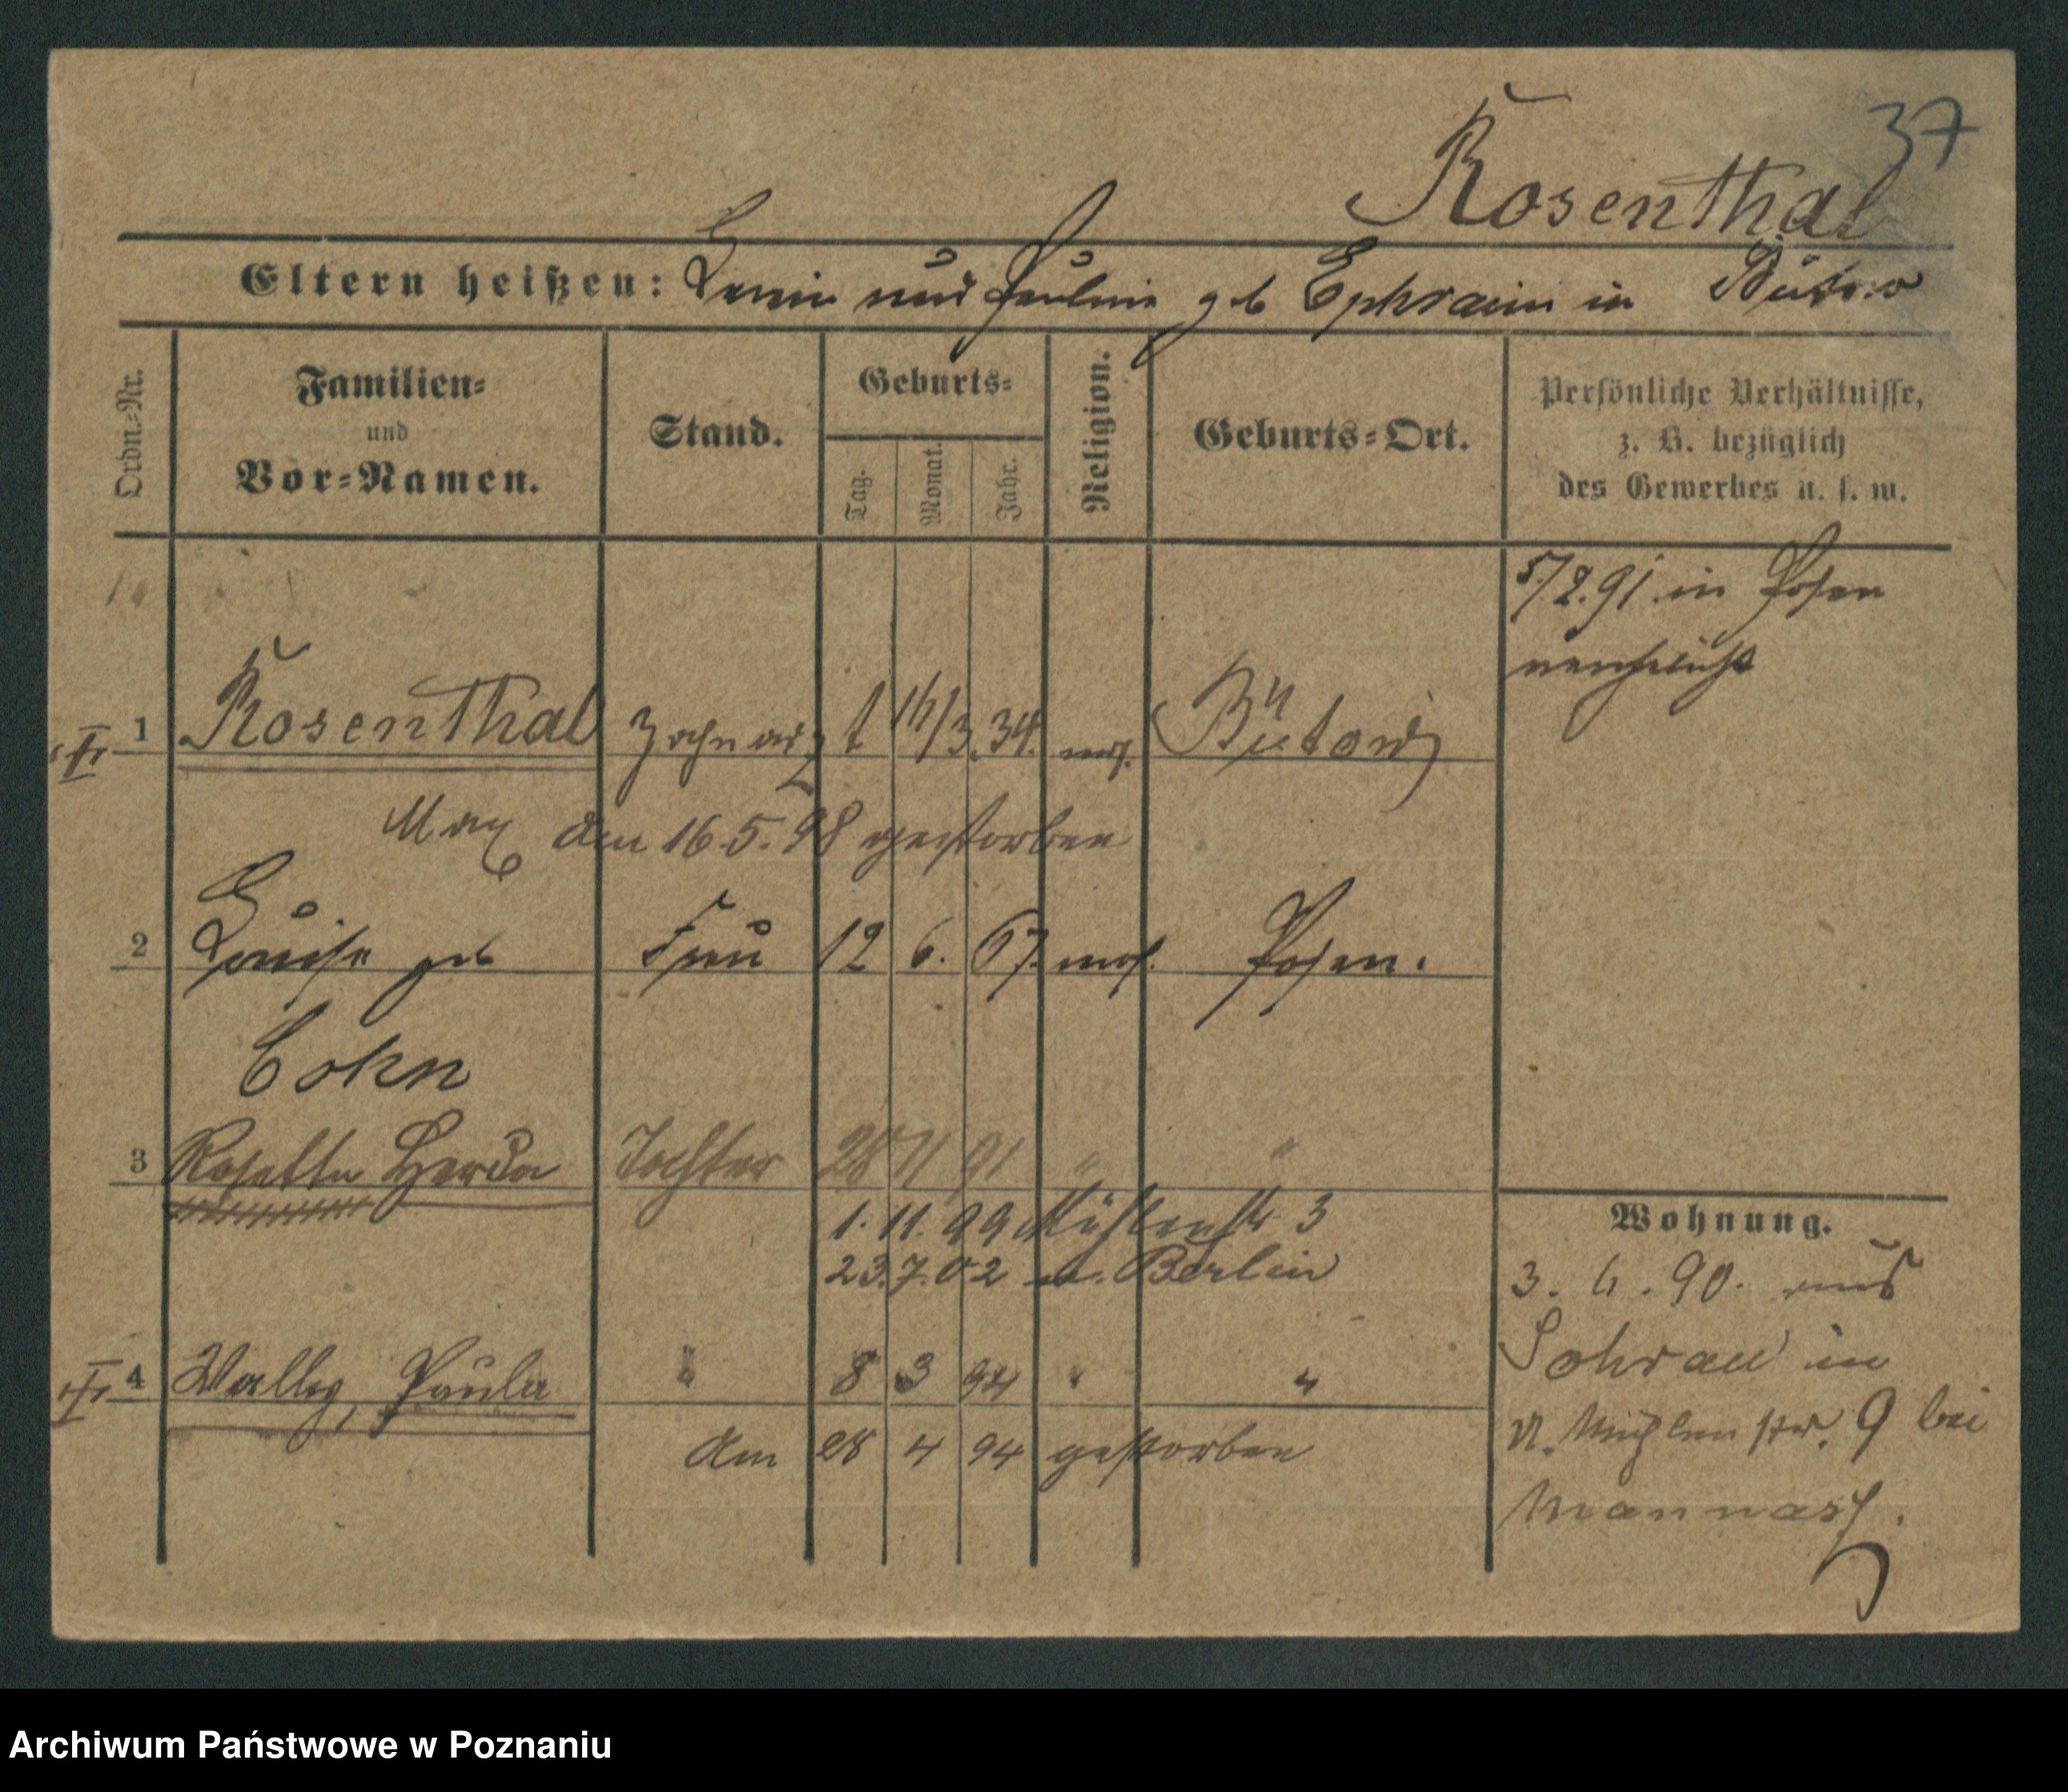 37
Rosenthal
Eltern heißen: Louis und Pauline geb Ephraim in Bütow
Ordn.-Nr.
Familien- und Vor-Namen.
Stand.
Geburts-
Tag.
Monat.
Jahr.
Religion.
Geburts-Ort.
Persönliche Verhältnisse,
z. B. bezüglich
des Gewerbes u. s. w.
5/2.91 in Posen
verehelicht
1 Rosenthal Zahnarzt mos. Bütow
Max am 16.5.98 gestorben
2 Louise geb Frau 12 6. 67. mos. Posen.
Cohn
3 Rosette Herda Tochter 28 11 91 " "
1.11.99 Mühlenstr 3
23.7.02 n. Berlin
4 Wally, Paula " 8 3 94 " "
Am 28 4 94 gestorben
Wohnung.
3. 4. 90. aus
Sohrau in
N. Mühlenstr. 9 bei
Mannasch.
Archiwum Państwowe w Poznaniu